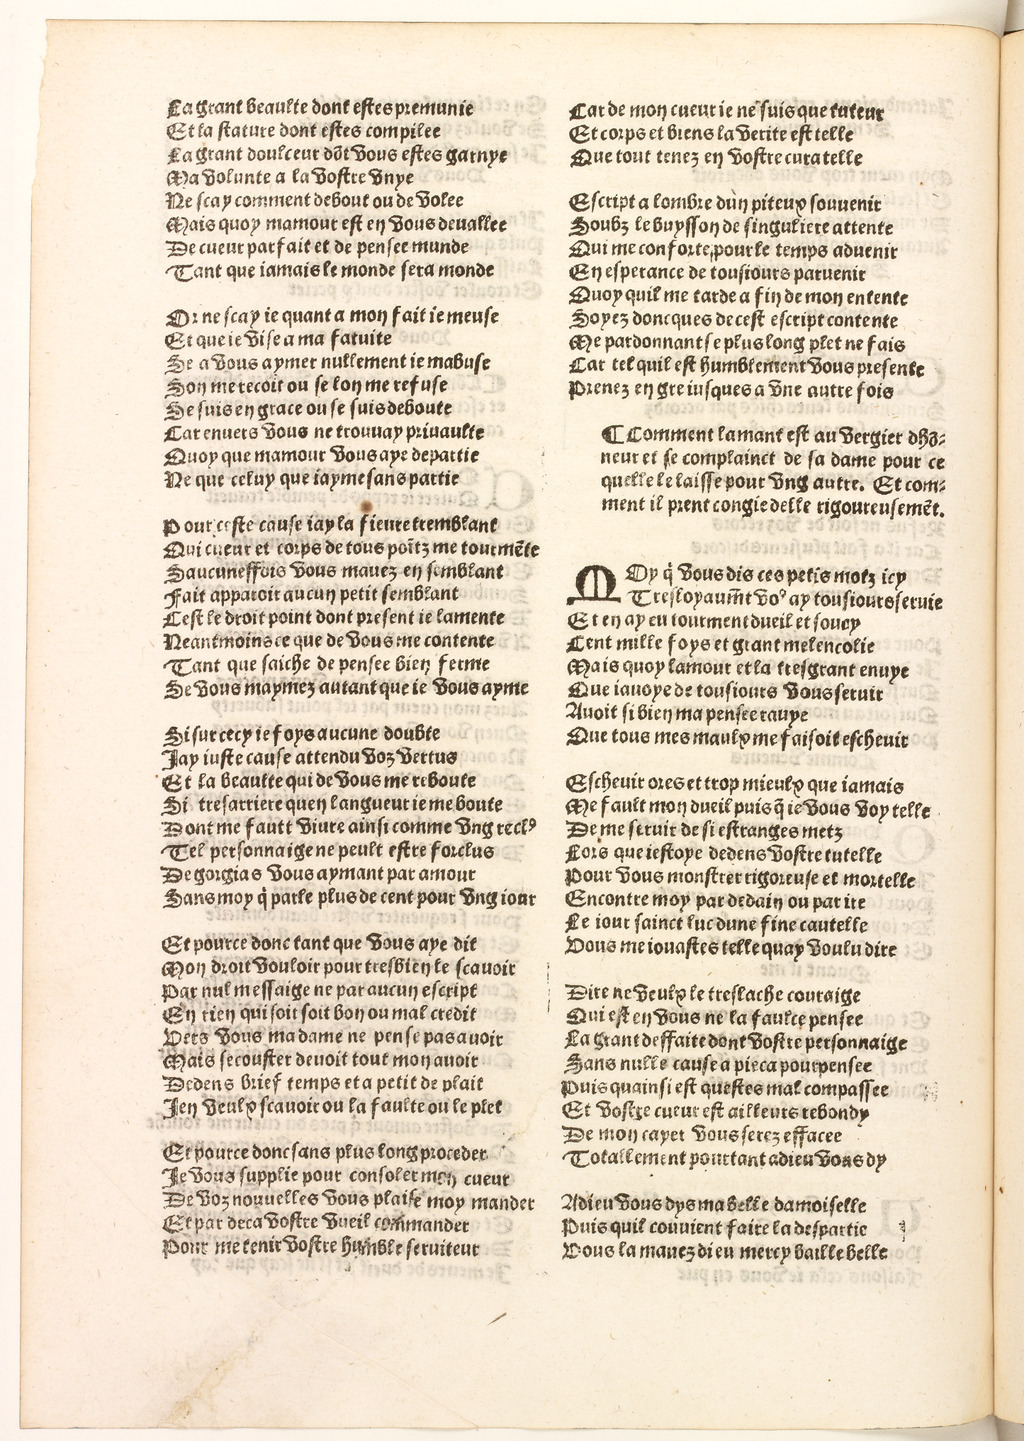 La grant beaulte dont estes premunie
Et la stature dont estes compilee
La grant doulceur dõt vous estes garnye
Ma volunte a la vostre vnye
Ne scay comment debout ou de volee
Mais quoy mamour est en vous deuallee
De cueur parfait et de pensee munde
Tant que iamais le monde sera monde
Or ne scay ie quant a mon fait ie meuse
Et que ie vise a ma fatuite
Se a vous aymer nullement ie mabuse
Son me recoit ou se lon me refuse
Se suis en grace ou se suis deboute
Car enuers vous ne trouuay priuaulte
Quoy que mamour vous aye departie
Ne que celuy que iayme sans partie
Pour ceste cause iay la fieure tremblant
Qui cueur et corps de tous poĩtz me tourmẽte
Saucuneffois vous mauez en semblant
Fait apparoir aucun petit semblant
Cest le droit point dont present ie lamente
Neantmoins ce que de vous me contente
Tant que saiche de pensee bien ferme
Se vous maymez autant que ie vous ayme
Si sur cecy ie foys aucune doubte
Jay iuste cause attendu voz vertus
Et la beaulte qui de vous me reboute
Si tresarriere quen langueur ie me boute
Dont me fault viure ainsi comme vng reclꝰ
Tel personnaige ne peult estre forclus
De gorgias vous aymant par amour
Sans moy q̃ parle plus de cent pour vng iour
Et pource donc tant que vous aye dit
Mon droit vouloir pour tresbien le scauoir
Par nul messaige ne par aucun escript
En rien qui soit soit bon ou mal credit
Vers vous ma dame ne pense pas auoir
Mais se couster deuoit tout mon auoir
Dedens brief temps et a petit de plait
Jen veulx scauoir ou la faulte ou le plet
Et pource donc sans plus long proceder
Je vous supplie pour consoler mon cueur
De voz nouuelles vous plaise moy mander
Et par deca vostre vueil commander
Pour me tenir vostre humble seruiteur
Car de mon cueur ie ne suis que tuteur
Et corps et biens la verite est telle
Que tout tenez en vostre curatelle
Escript a lombre dun piteux souuenir
Soubz le buysson de singuliere attente
Qui me conforte pour le temps aduenir
En esperance de tousiours paruenir
Quoy quil me tarde a fin de mon entente
Soyez doncques de cest escript contente
Me pardonnant se plus long plet ne fais
Car tel quil est humblement vous presente
Prenez en gre iusques a vne autre fois
¶ Comment lamant est au vergier dhõ-
neur et se complainct de sa dame pour ce
quelle le laisse pour vng autre. Et com-
ment il prent congie delle rigoureusemẽt.
Moy q̃ vous dis ces petis motz icy
Tresloyaum̃t voꝰ ay tousiours seruie
Et en ay eu tourment dueil et soucy
Cent mille foys et grant melencolie
Mais quoy lamour et la tresgrant enuye
Que iauoye de tousiours vous seruir
Auoit si bien ma pensee rauye
Que tous mes maulx me faisoit escheuir
Escheuir ores et trop mieulx que iamais
Me fault mon dueil puis q̃ ie vous voy telle
De me seruir de si estranges metz
Lors que iestoye dedens vostre tutelle
Pour vous monstrer rigoreuse et mortelle
Encontre moy par dedain ou par ire
Le iour sainct luc dune fine cautelle
Vous me iouastes telle quay voulu dire
Dire ne veulx le treslache couraige
Qui est en vous ne la faulce pensee
La grant deffaite dont vostre personnaige
Sans nulle cause a pieca pourpensee
Puis quainsi est questes mal compassee
Et vostre cueur est ailleurs rebondy
De mon cayer vous serez effacee
Totallement pourtant adieu vous dy
Adieu vous dys ma belle damoiselle
Puis quil conuient faire la despartie
Vous la mauez dieu mercy baille belle